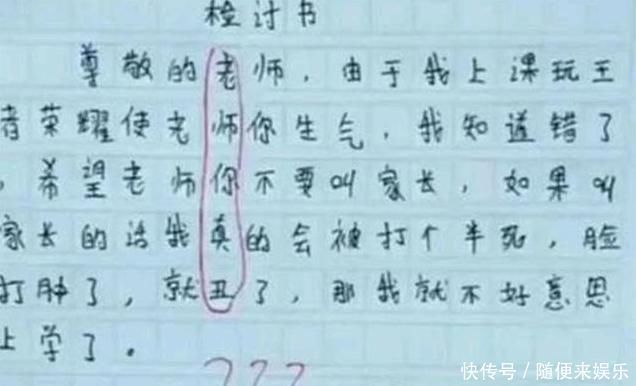 检讨书
尊敬的老师，由于我上课玩王
者荣耀使老师你生气，我知道错了
，希望老师你不要叫家长，如果叫
家长的话我真的会被打个半死，脸
打肿了，就丑了，那我就不好意思
上学了。
???
快传号/随便来娱乐